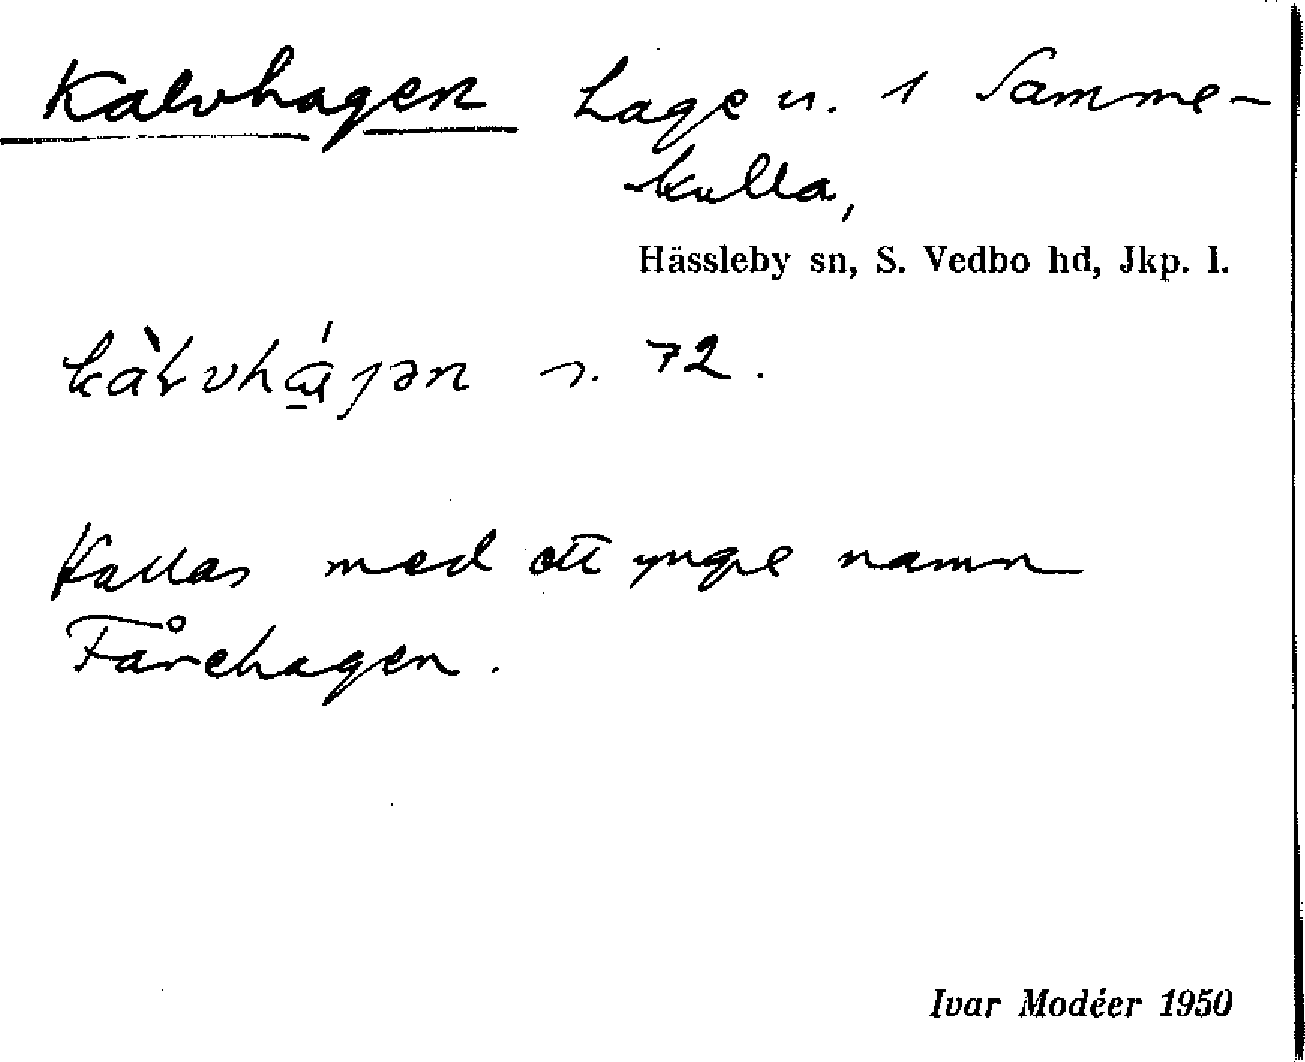 Kalvhagen hage u. 1 Samme-
kulla,
Hässleby sn, S. Vedbo hd, Jkp. l.
s. 72.
Kallas med ett yngre namn
Fårehagen.
Ivar Modéer 1950